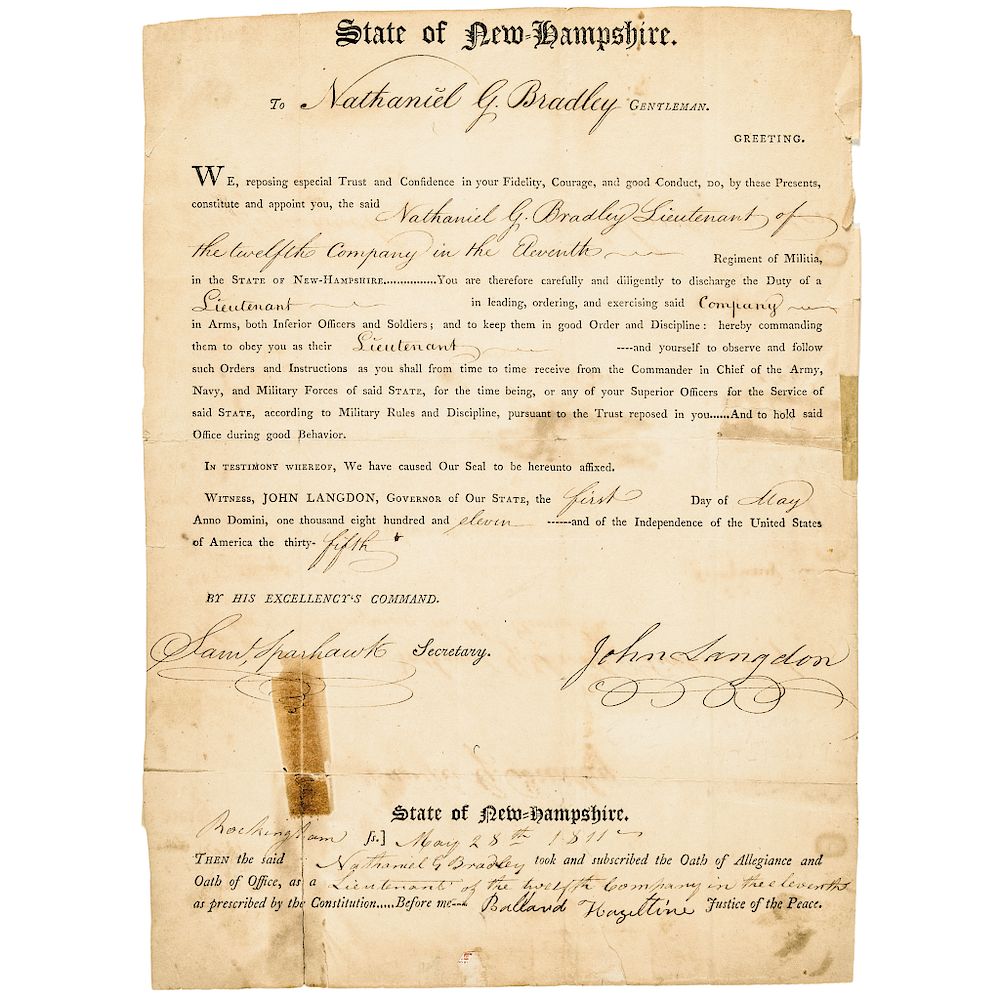 State of New-Hampshire.
To Nathaniel G. Bradley Gentleman.
GREETING.
WE, reposing especial Trust and Confidence in your Fidelity, Courage, and good Conduct, DO, by these Presents,
constitute and appoint you, the said Nathaniel G. Bradley Lieutenant of
the twelfth Company in the Eleventh Regiment of Militia,
in the STATE OF NEW-HAMPSHIRE...............You are therefore carefully and diligently to discharge the Duty of a
Lieutenant in leading, ordering, and exercising said Company
in Arms, both Inferior Officers and Soldiers; and to keep them in good Order and Discipline: hereby commanding
them to obey you as their Lieutenant ----and yourself to observe and follow
such Orders and Instructions as you shall from time to time receive from the Commander in Chief of the Army,
Navy, and Military Forces of said STATE, for the time being, or any of your Superior Officers for the Service of
said STATE, according to Military Rules and Discipline, pursuant to the Trust reposed in you......And to hold said
Office during good Behavior.
IN TESTIMONY WHEREOF, We have caused Our Seal to be hereunto affixed.
WITNESS, JOHN LANGDON, GOVERNOR OF OUR STATE, the first Day of May
Anno Domini, one thousand eight hundred and eleven ------and of the Independence of the United States
of America the thirty-fifth
BY HIS EXCELLENCY'S COMMAND.
Saml, Sparhawk Secretary. John Langdon
State of New-Hampshire.
Rockingham ſs.] May 28th 1811
THEN the said Nathaniel G Bradley took and subscribed the Oath of Allegiance and
Oath of Office, as a Lieutenant of the twelfth Company in the eleventh
as prescribed by the Constitution.....Before me--- Ballard Hazeltine Justice of the Peace.